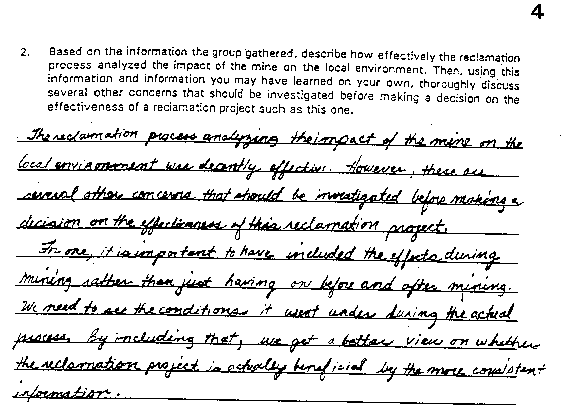 4
2. Based on the information the group gathered, describe how effectively the reclamation
process analyzed the impact of the mine on the local environment. Then, using this
information and information you may have learned on your own, thoroughly discuss
several other concerns that should be investigated before making a decision on the
effectiveness of a reclamation project such as this one.
The reclamation process analyzing the impact of the mine on the
local environment was decently effective. However, there are
several other concerns that should be investigated before making a
decision on the effectiveness of this reclamation project.
For one, it is important to have included the effects during
mining rather than just having on before and after mining.
We need to see the conditions it went under during the actual
process. By including that, we get a better view on whether
the reclamation project is actually beneficial by the more consistent
information.